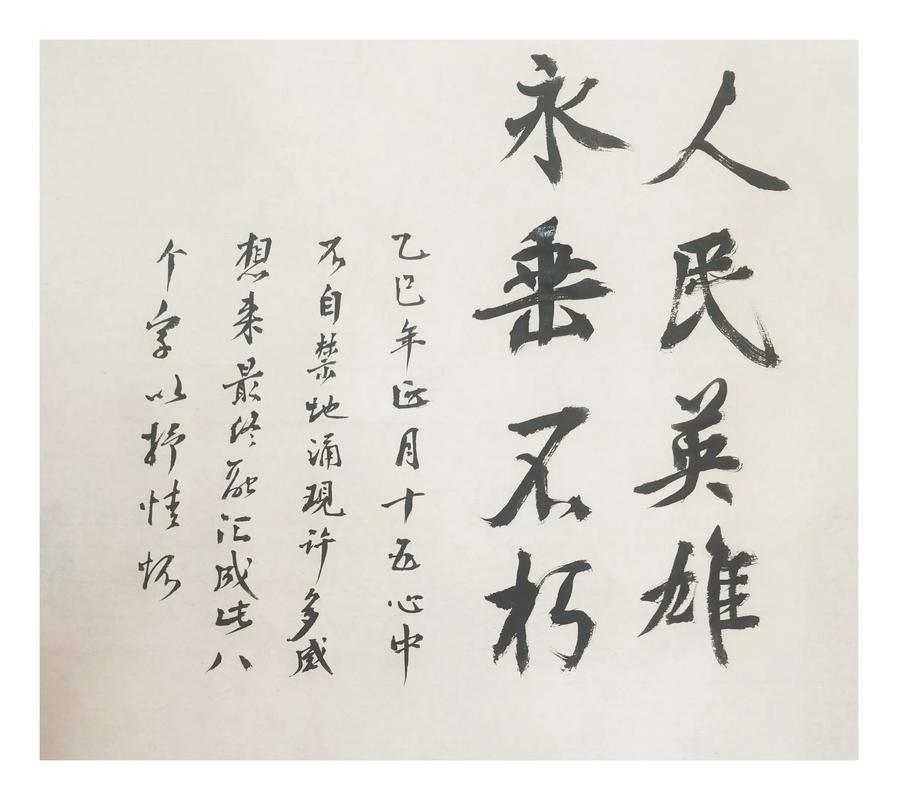 人民英雄
永垂不朽
乙巳年正月十五心中
不自禁地涌现许多感
想来最终融汇成此八
个字以抒情怀